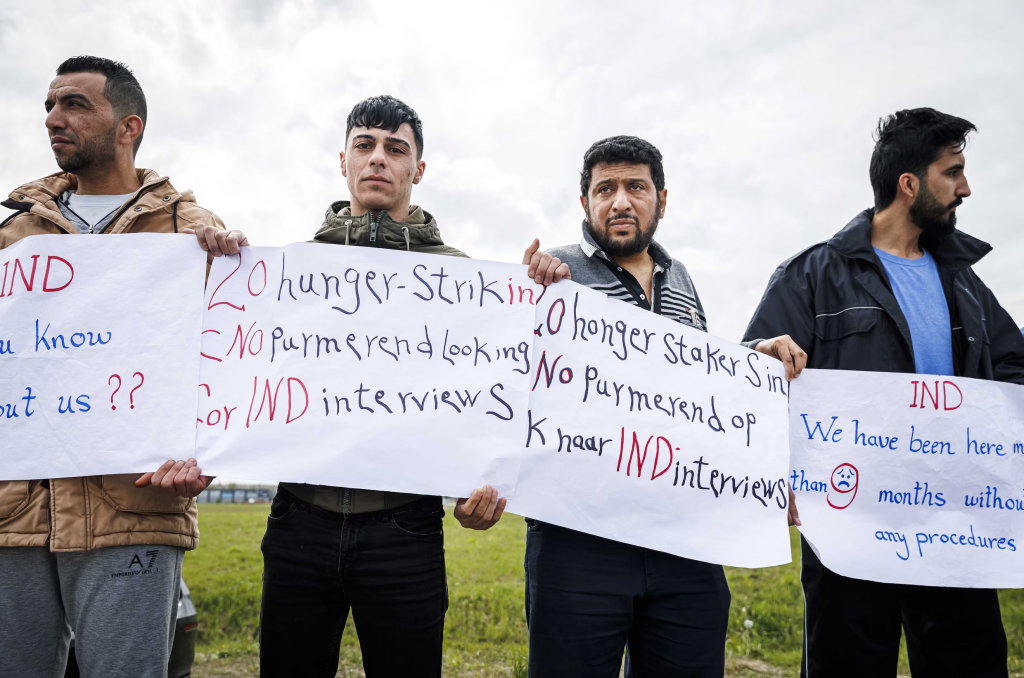 IND
u know
out us ??
20 hunger-strikin
CNO purmerend Looking
for IND interviews
20 honger stakers in
No purmerend op
k naar IND interviews
IND
We have been here m
than 9 months withou
any procedures
A7